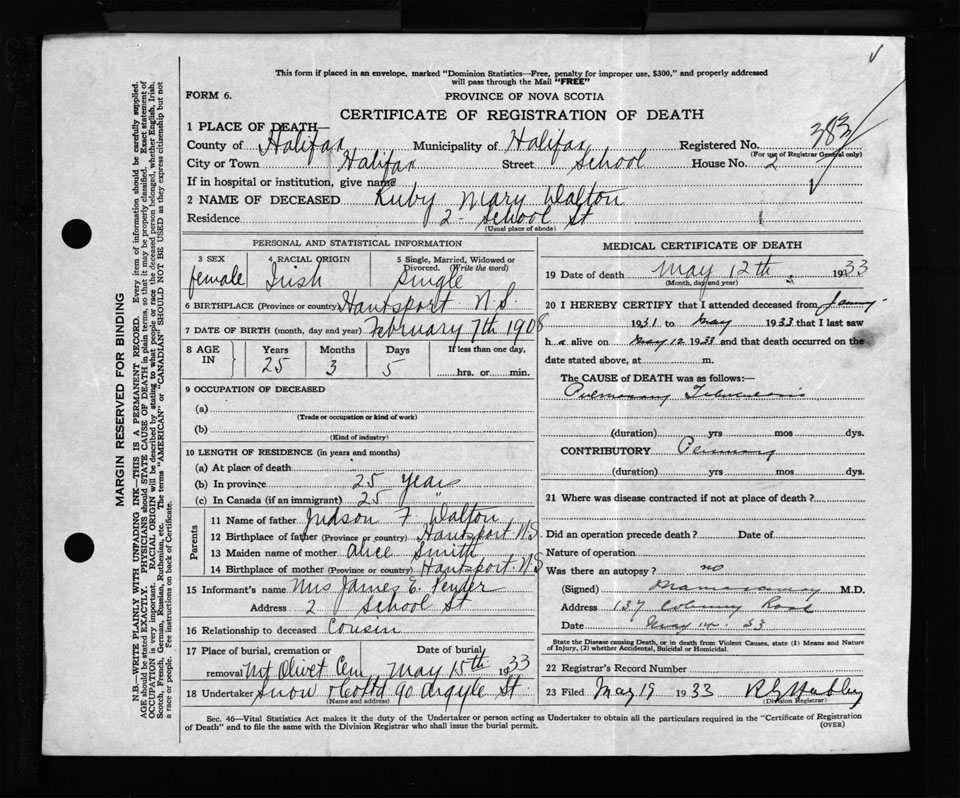 This form if placed in an envelope, marked "Dominion Statistics—Free, penalty for improper use, $300," and properly addressed
will pass through the Mail "FREE"
FORM 6.
PROVINCE OF NOVA SCOTIA
CERTIFICATE OF REGISTRATION OF DEATH
1 PLACE OF DEATH—
County of Halifax Municipality of Halifax Registered No. 383
(For use of Registrar General only)
City or Town Halifax Street School House No. 2
If in hospital or institution, give name
2 NAME OF DECEASED Ruby Mary Dalton
Residence 2 School St
(Usual place of abode)
PERSONAL AND STATISTICAL INFORMATION
3 SEX female
4 RACIAL ORIGIN Irish
5 Single, Married, Widowed or Divorced. (Write the word) Single
6 BIRTHPLACE (Province or country) Hantsport N.S.
7 DATE OF BIRTH (month, day and year) February 7th 1908
8 AGE IN Years 25 Months 3 Days 5 If less than one day, hrs. or min.
9 OCCUPATION OF DECEASED
(a)
(Trade or occupation or kind of work)
(b)
(Kind of industry)
10 LENGTH OF RESIDENCE (in years and months)
(a) At place of death
(b) In province 25 years
(c) In Canada (if an immigrant) 25 "
Parents
11 Name of father Judson F Dalton
12 Birthplace of father (Province or country) Hantsport N.S.
13 Maiden name of mother Alice Smith
14 Birthplace of mother (Province or country) Hantsport N.S
15 Informant's name Mrs James E. Pender
Address 2 School St
16 Relationship to deceased Cousin
17 Place of burial, cremation or removal Mt Olivet Cem Date of burial May 15th 1933
18 Undertaker Snow & Co Ltd 90 Argyle St
(Name and address)
MEDICAL CERTIFICATE OF DEATH
19 Date of death May 12th 1933
(Month, day and year)
20 I HEREBY CERTIFY that I attended deceased from
1931 to May 1933 that I last saw
h alive on May 12 1933 and that death occurred on the
date stated above, at m.
The CAUSE OF DEATH was as follows:—
Pulmonary Tuberculosis
(duration) yrs mos dys.
CONTRIBUTORY
(duration) yrs mos dys.
21 Where was disease contracted if not at place of death?
Did an operation precede death? Date of
Nature of operation
Was there an autopsy? no
(Signed) M.D.
Address 137 Road
Date May 33
State the Disease causing Death, or in death from Violent Causes, state (1) Means and Nature
of Injury, (2) whether Accidental, Suicidal or Homicidal.
22 Registrar's Record Number
23 Filed May 19 1933
(Division Registrar)
Sec. 46—Vital Statistics Act makes it the duty of the Undertaker or person acting as Undertaker to obtain all the particulars required in the "Certificate of Registration
of Death" and to file the same with the Division Registrar who shall issue the burial permit.
(OVER)
MARGIN RESERVED FOR BINDING
N.B.—WRITE PLAINLY WITH UNFADING INK—THIS IS A PERMANENT RECORD. Every item of information should be carefully supplied.
AGE should be stated EXACTLY. PHYSICIANS should STATE CAUSE OF DEATH in plain terms, so that it may be properly classified. Exact statement of
OCCUPATION is very important. RACIAL ORIGIN will be described by stating to what people or race the deceased person belonged, whether English, Irish,
Scotch, French, German, Russian, Ruthenian, etc. The terms "AMERICAN" or "CANADIAN" SHOULD NOT BE USED as they express citizenship but not
a race or people. See instructions on back of Certificate.